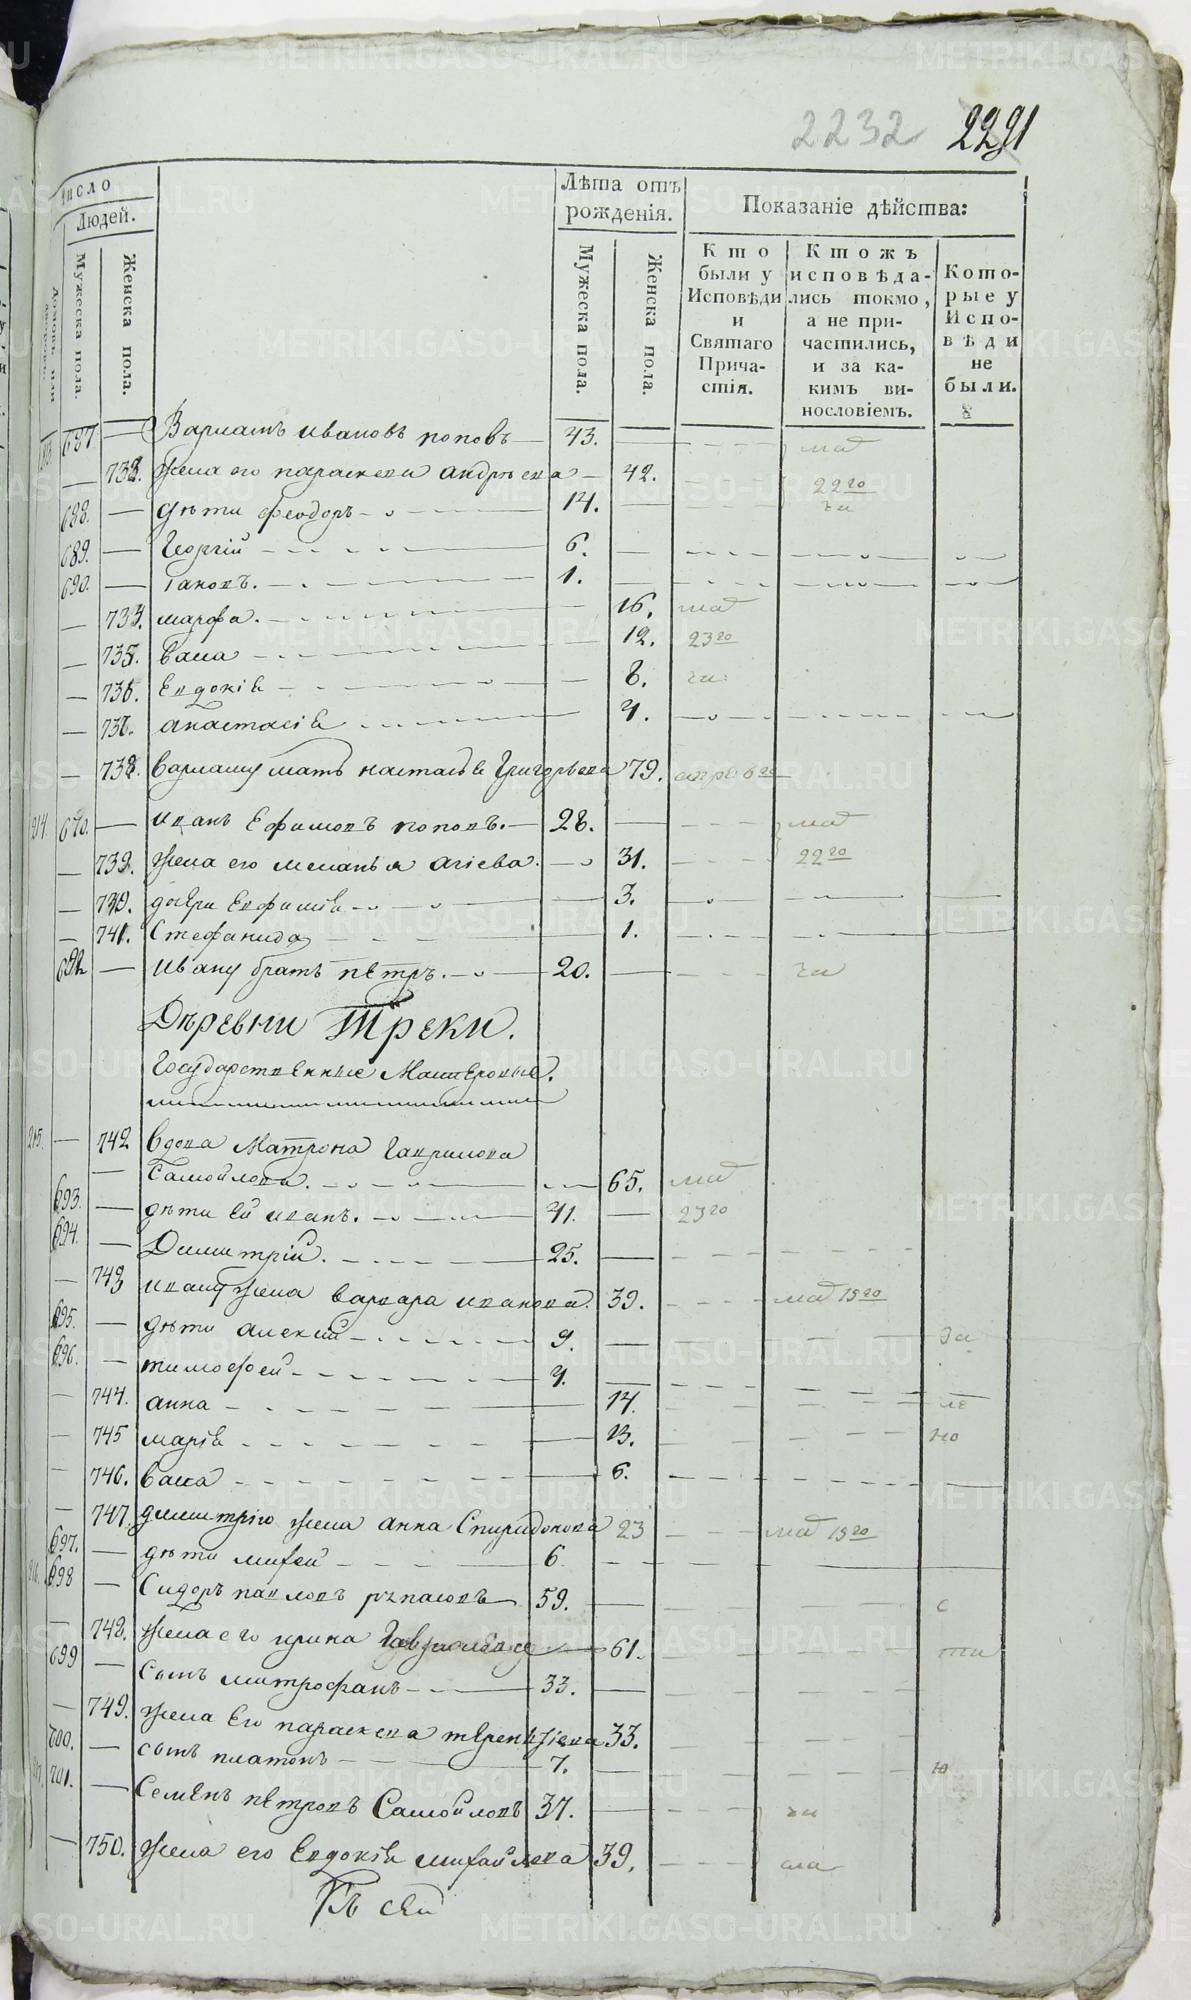 2232 2291
Число
Людей.
Лѣта отъ
рожденія.
Показаніе дѣйства:
Мужеска пола.
Женска пола.
Мужеска пола.
Женска пола.
Кто
были у
Исповѣди
и
Святаго
Прича-
стія.
Ктожъ
исповѣда-
лись токмо,
а не при-
частились,
и за ка-
кимъ ви-
нословіемъ.
Кото-
рые у
Испо-
вѣди
не
были.
687. Варламъ ивановъ поповъ 43. маѣ
733. жена его параскева андрѣева 42. 22го
688. дѣти феодоръ 14.
689. Георгій 6.
690. Іаковъ. 1.
734. марфа. 16. маѣ
735. васса 12. 23го
736. Евдокіѣ 8.
737. анастасіѣ 4.
738. варламу мать настасьѣ Григорьева 79.
214. иванъ Ефимовъ поповъ. 28. маѣ
739. жена его меланья агіева. 31. 22го
740. дочери Евфиміѣ 3.
741. Стефанида 1.
692 ивану братъ пѣтръ. 20.
Дѣревни Треки.
Государственные Мастеровые.
215. 742 вдова Матрона Гаврилова
Самойлова. 65. маѣ
693. дѣти ей иванъ. 41. 23го
694. Димитрій. 25.
743 ивану жена варвара иванова. 39. маѣ 19го
695. дѣти алексѣй 9.
696. тимофей 4.
744. анна 14.
745 маріѣ 13.
746. васса 6.
747. димитрію жена анна Спиридонова 23 маѣ 19го
697. дѣти михей 6
698 Сидоръ павловъ 59.
748. жена его ирина 61.
699 сынъ митрофанъ 33.
749. жена Его параскева терентьева 33.
700. сынъ платонъ 7.
701. Семенъ пѣтровъ Самойловъ 37.
750. жена его Евдокіѣ михайлова 39.